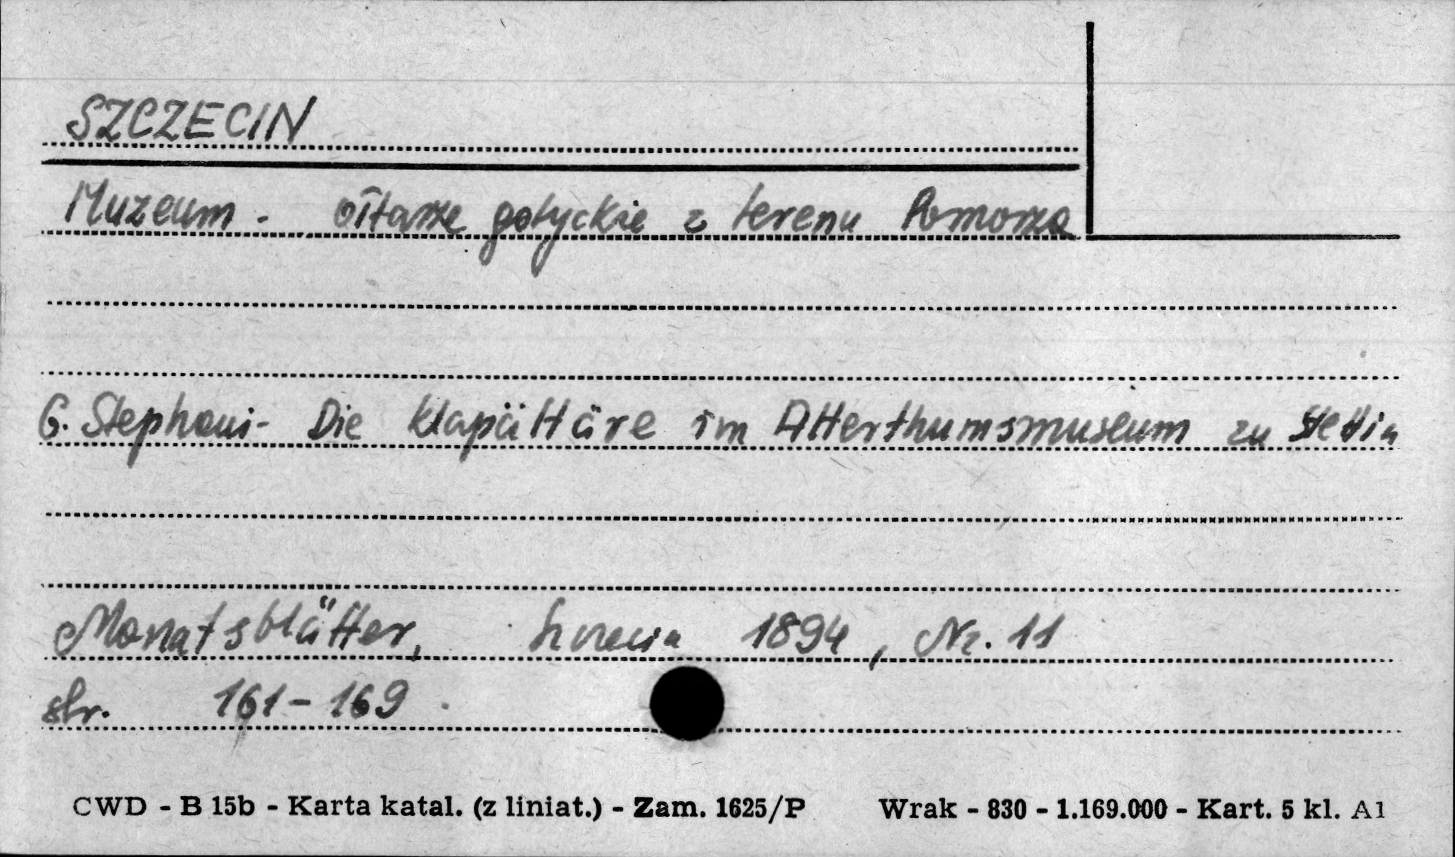 SZCZECIN
Muzeum - ołtarze gotyckie z terenu Pomorza
G. Stephani - Die Klapältäre im Alterthumsmuseum zu Stettin
Monatsblätter, 1894, Nr. 11
str. 161-169
CWD - B 15b - Karta katal. (z liniat.) - Zam. 1625/P Wrak - 830 - 1.169.000 - Kart. 5 kl. A1